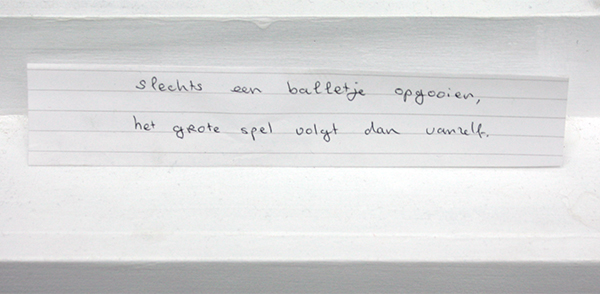 slechts een balletje opgooien,
het grote spel volgt dan vanzelf.